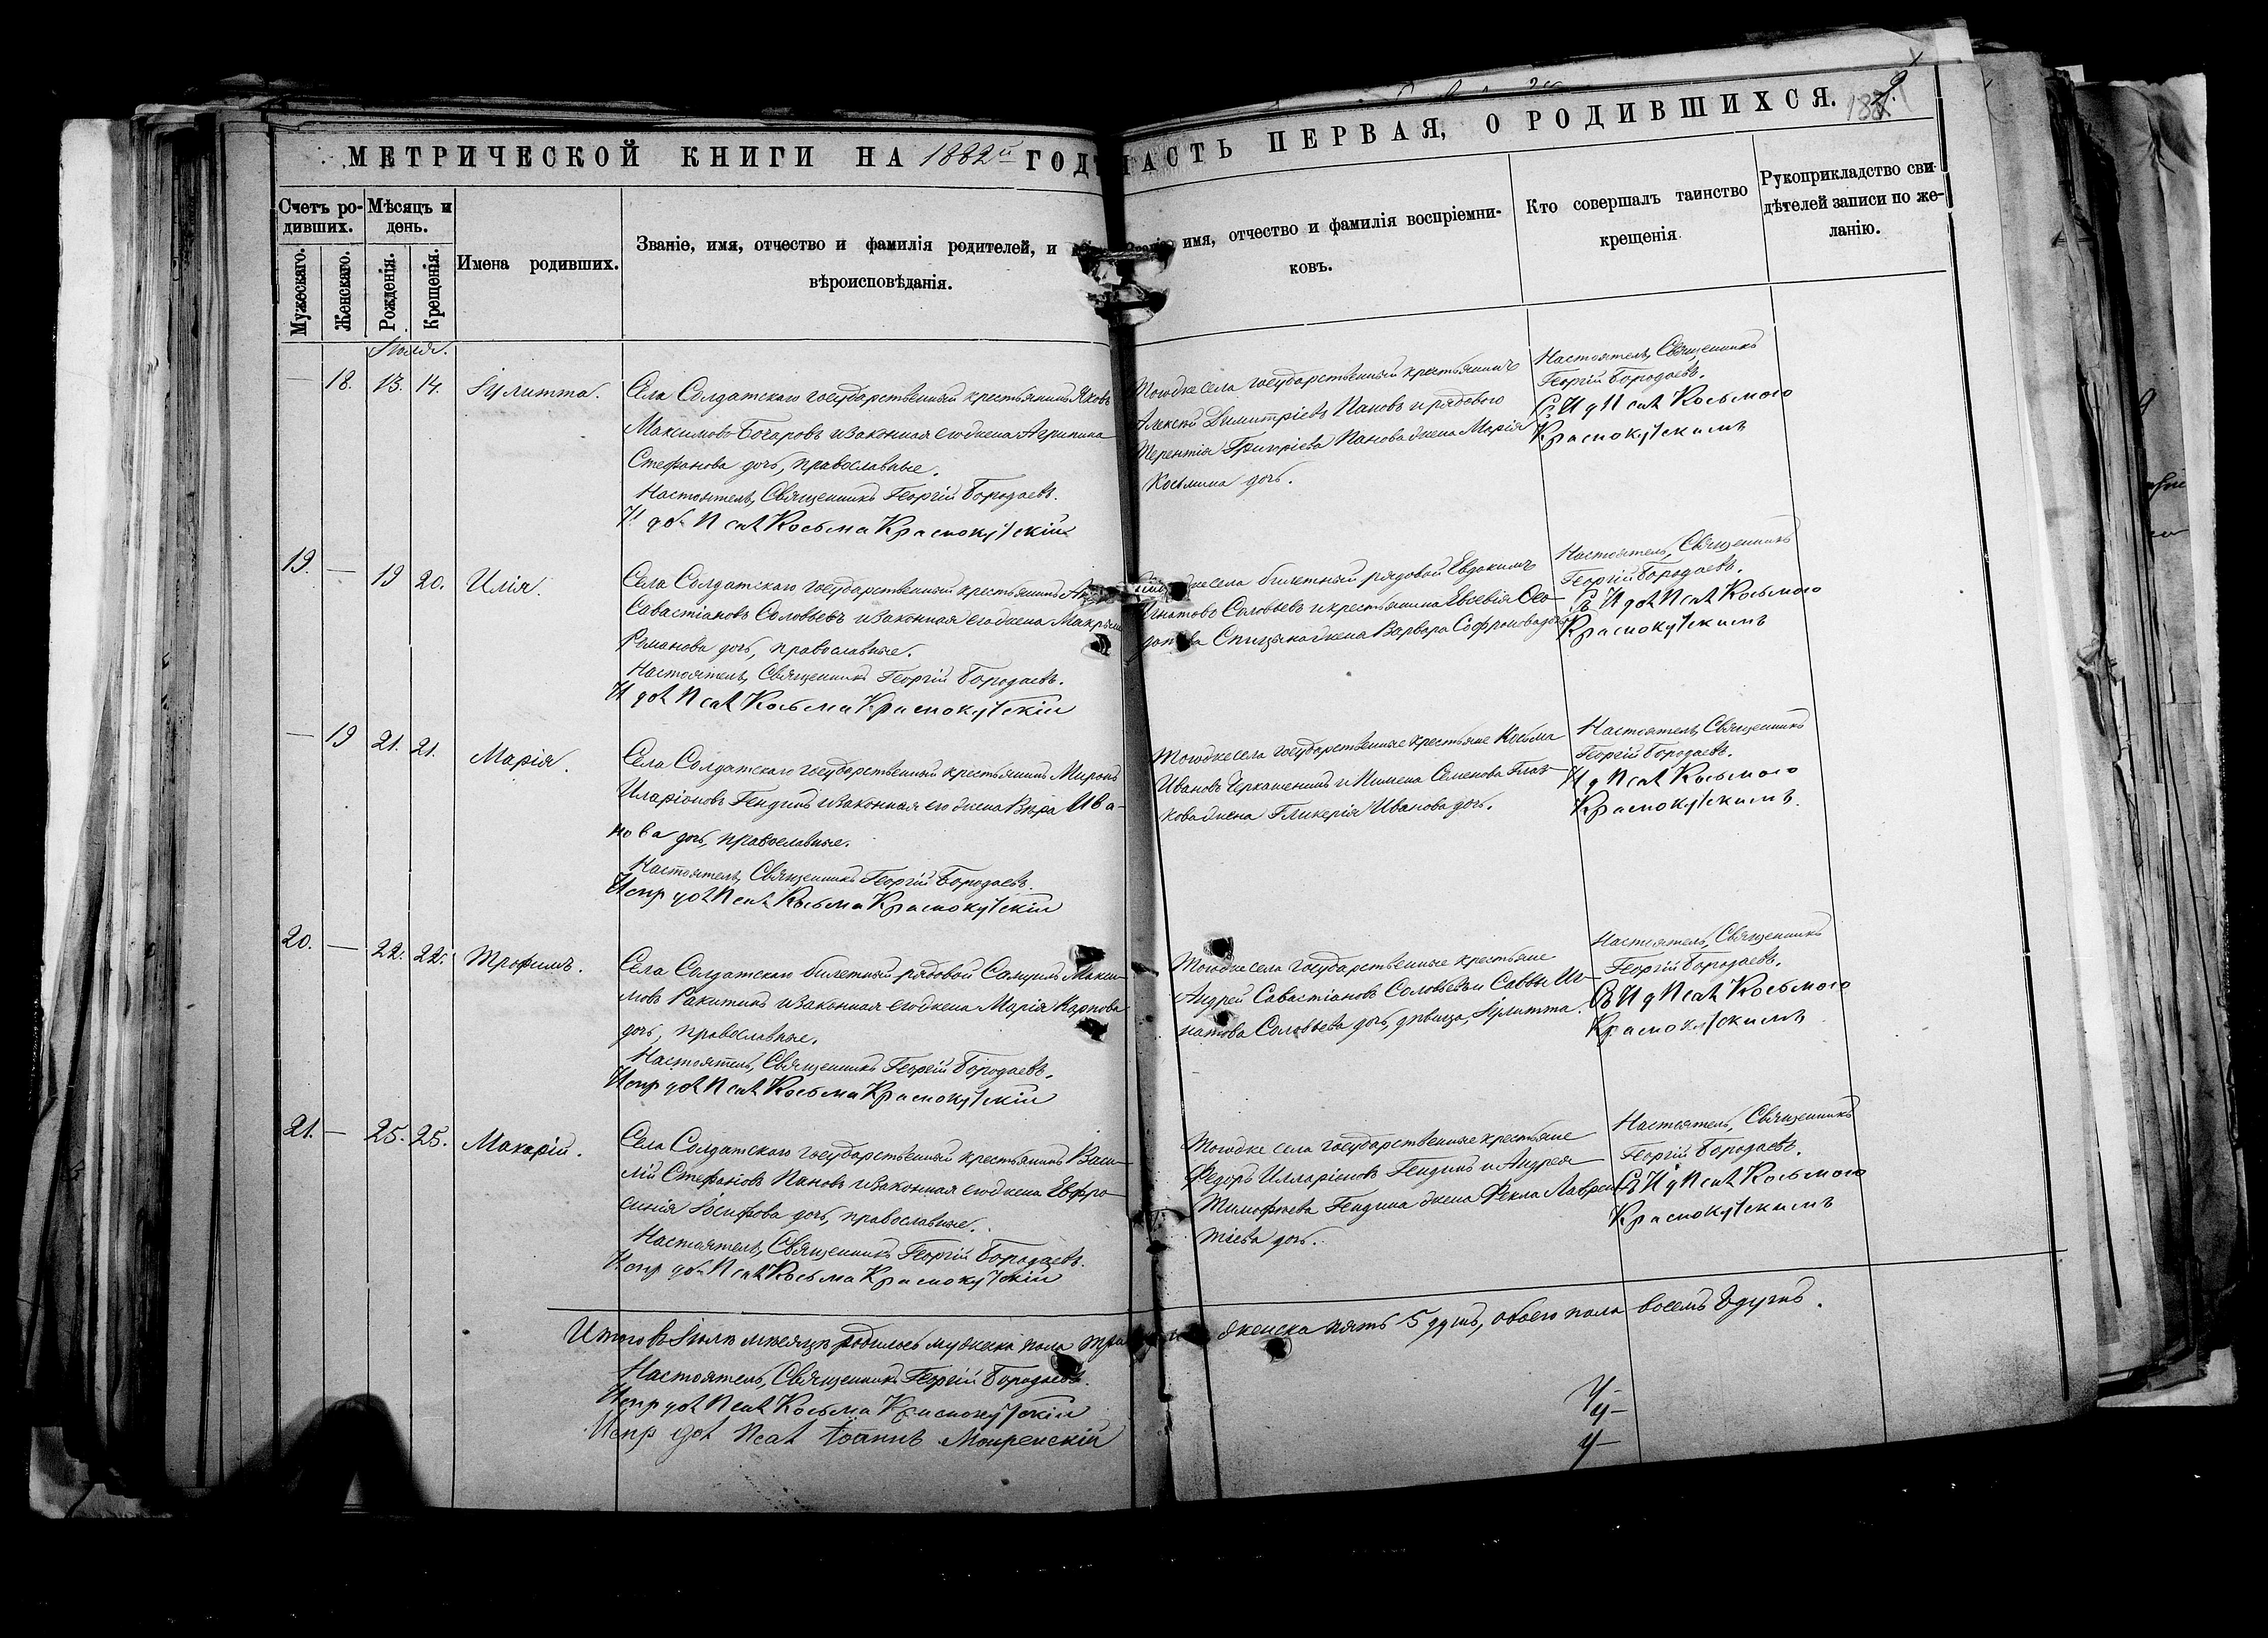 МЕТРИЧЕСКОЙ КНИГИ НА 1882й ГОДЪ
ЧАСТЬ ПЕРВАЯ, О РОДИВШИХСЯ.
Счетъ ро-
дившихъ.
Мужескаго.
Женскаго.
Мѣсяцъ и
день.
Рожденія.
Крещенія.
Имена родившихъ.
Званіе, имя, отчество и фамилія родителей, и
вѣроисповѣданія.
имя, отчество и фамилія воспріемни-
ковъ.
Кто совершалъ таинство
крещенія
Рукоприкладство сви-
дѣтелей записи по же-
ланію.
Іюля.
— 18. 13. 14. Іулитта.
Села Солдатскаго государственный крестьянинъ Яковъ
Максимовъ Бочаровъ и законная его жена Агрипина
Стефанова дочь, православные.
Настоятель, Священникъ Георгій Бородаевъ.
И дол Псал Косьма Краснокутскій
Тогоже села государственный крестьянинъ
Алексѣй Димитріевъ Пановъ и рядового
Терентія Григоріева Панова жена Марія
Косьмина дочь.
Настоятель, Священникъ
Георгій Бородаевъ.
Съ И д П сал Косьмою
Краснокутскимъ
19. — 19 20. Илія.
Села Солдатскаго государственный крестьянинъ
Савастіановъ Соловьевъ и законная его жена Макрина
Романова дочь, православные.
Настоятель, Священникъ Георгій Бородаевъ.
И дол Псал Косьма Краснокутскій
села билетный рядовой Евдокимъ
Игнатовъ Соловьевъ и крестьянина Евсевія Ѳео-
дотова Спицына жена Варвара Софронова дочь
Настоятель, Священникъ
Георгій Бородаевъ.
Съ И дол Псал Косьмою
Краснокутскимъ
— 19 21. 21. Марія.
Села Солдатскаго государственный крестьянинъ Миронъ
Иларіоновъ Гендинъ и законная его жена Вѣра Ива-
нова дочь, православные.
Настоятель, Священникъ Георгій Бородаевъ.
Испр дол Псал Косьма Краснокутскій
Тогоже села государственные крестьяне Косьма
Ивановъ Черкашенинъ и Пимена Семенова Глаз-
кова жена Гликерія Иванова дочь.
Настоятель, Священникъ
Георгій Бородаевъ.
И д Псал Косьмою
Краснокутскимъ.
20. — 22. 22. Трофимъ.
Села Солдатскаго билетный рядовой Самуилъ Макси-
мовъ Ракитинъ и законная его жена Марія Карпова
дочь, православные.
Настоятель, Священникъ Георгій Бородаевъ.
Испр дол Псал Косьма Краснокутскій
Тогоже села государственные крестьяне
Андрей Савастіановъ Соловьевъ и Саввы Иг-
натова Соловьева дочь, дѣвица, Іулитта.
Настоятель, Священникъ
Георгій Бородаевъ.
Съ И д Псал Косьмою
Краснокутскимъ
21. — 25. 25. Макарій.
Села Солдатскаго государственный крестьянинъ Васи-
лій Стефановъ Пановъ и законная его жена Евфро-
синія Іосифова дочь, православные.
Настоятель, Священникъ Георгій Бородаевъ.
Испр дол Псал Косьма Краснокутскій
Тогоже села государственные крестьяне
Федоръ Илларіоновъ Гендинъ и Андрея
Тимофѣева Гендина жена Фекла Лаврен-
тіева дочь.
Настоятель, Священникъ
Георгій Бородаевъ.
Съ И д Псал Косьмою
Краснокутскимъ
Итого въ Іюлѣ мѣсяцѣ родилось мужеска пола три женска пять 5 душъ, обоего пола восемь 8 душъ.
Настоятель, Священникъ Георгій Бородаевъ.
Испр дол Псал Косьма Краснокутскій
Испр дол Псал Іоаннъ